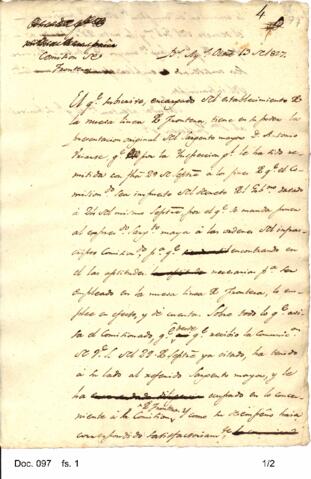 4
Comision de
frontera
Bs. Ays. Octe. 13 de 1827.
El qe. subscribe, encargado del establecimiento de
la nueva linea de frontera, tiene en su poder la
presentacion original del Sargento mayor D.
qe. por la Inspeccion gl. le ha sido re-
mitida con fha. 20 de Septe. a los fines de qe. el Co-
misiondo. sea impuesto del decreto del datado
á del mismo Septe. por el qe. se manda poner
al expresdo. Sargto. mayor á las ordenes del infras-
cripto Comisiondo. pa. qe. encontrando en
el las aptitudes necesarias pa. ser
empleado en la nueva linea de frontera, lo em-
plee en efecto, y dé cuenta. Sobre todo lo qe. avi-
sa el Comisionado, qe. desde qe. recibio la comunicn.
de V. S. del 20 de Septe. ya citado, ha tenido
á su lado al referido Sargento mayor, y le
ha ocupado en lo conce-
niente á la Comision de frontera, y como su desempeño haia
correspondido satisfactoriamte.
Doc. 097 fs. 1
1/2